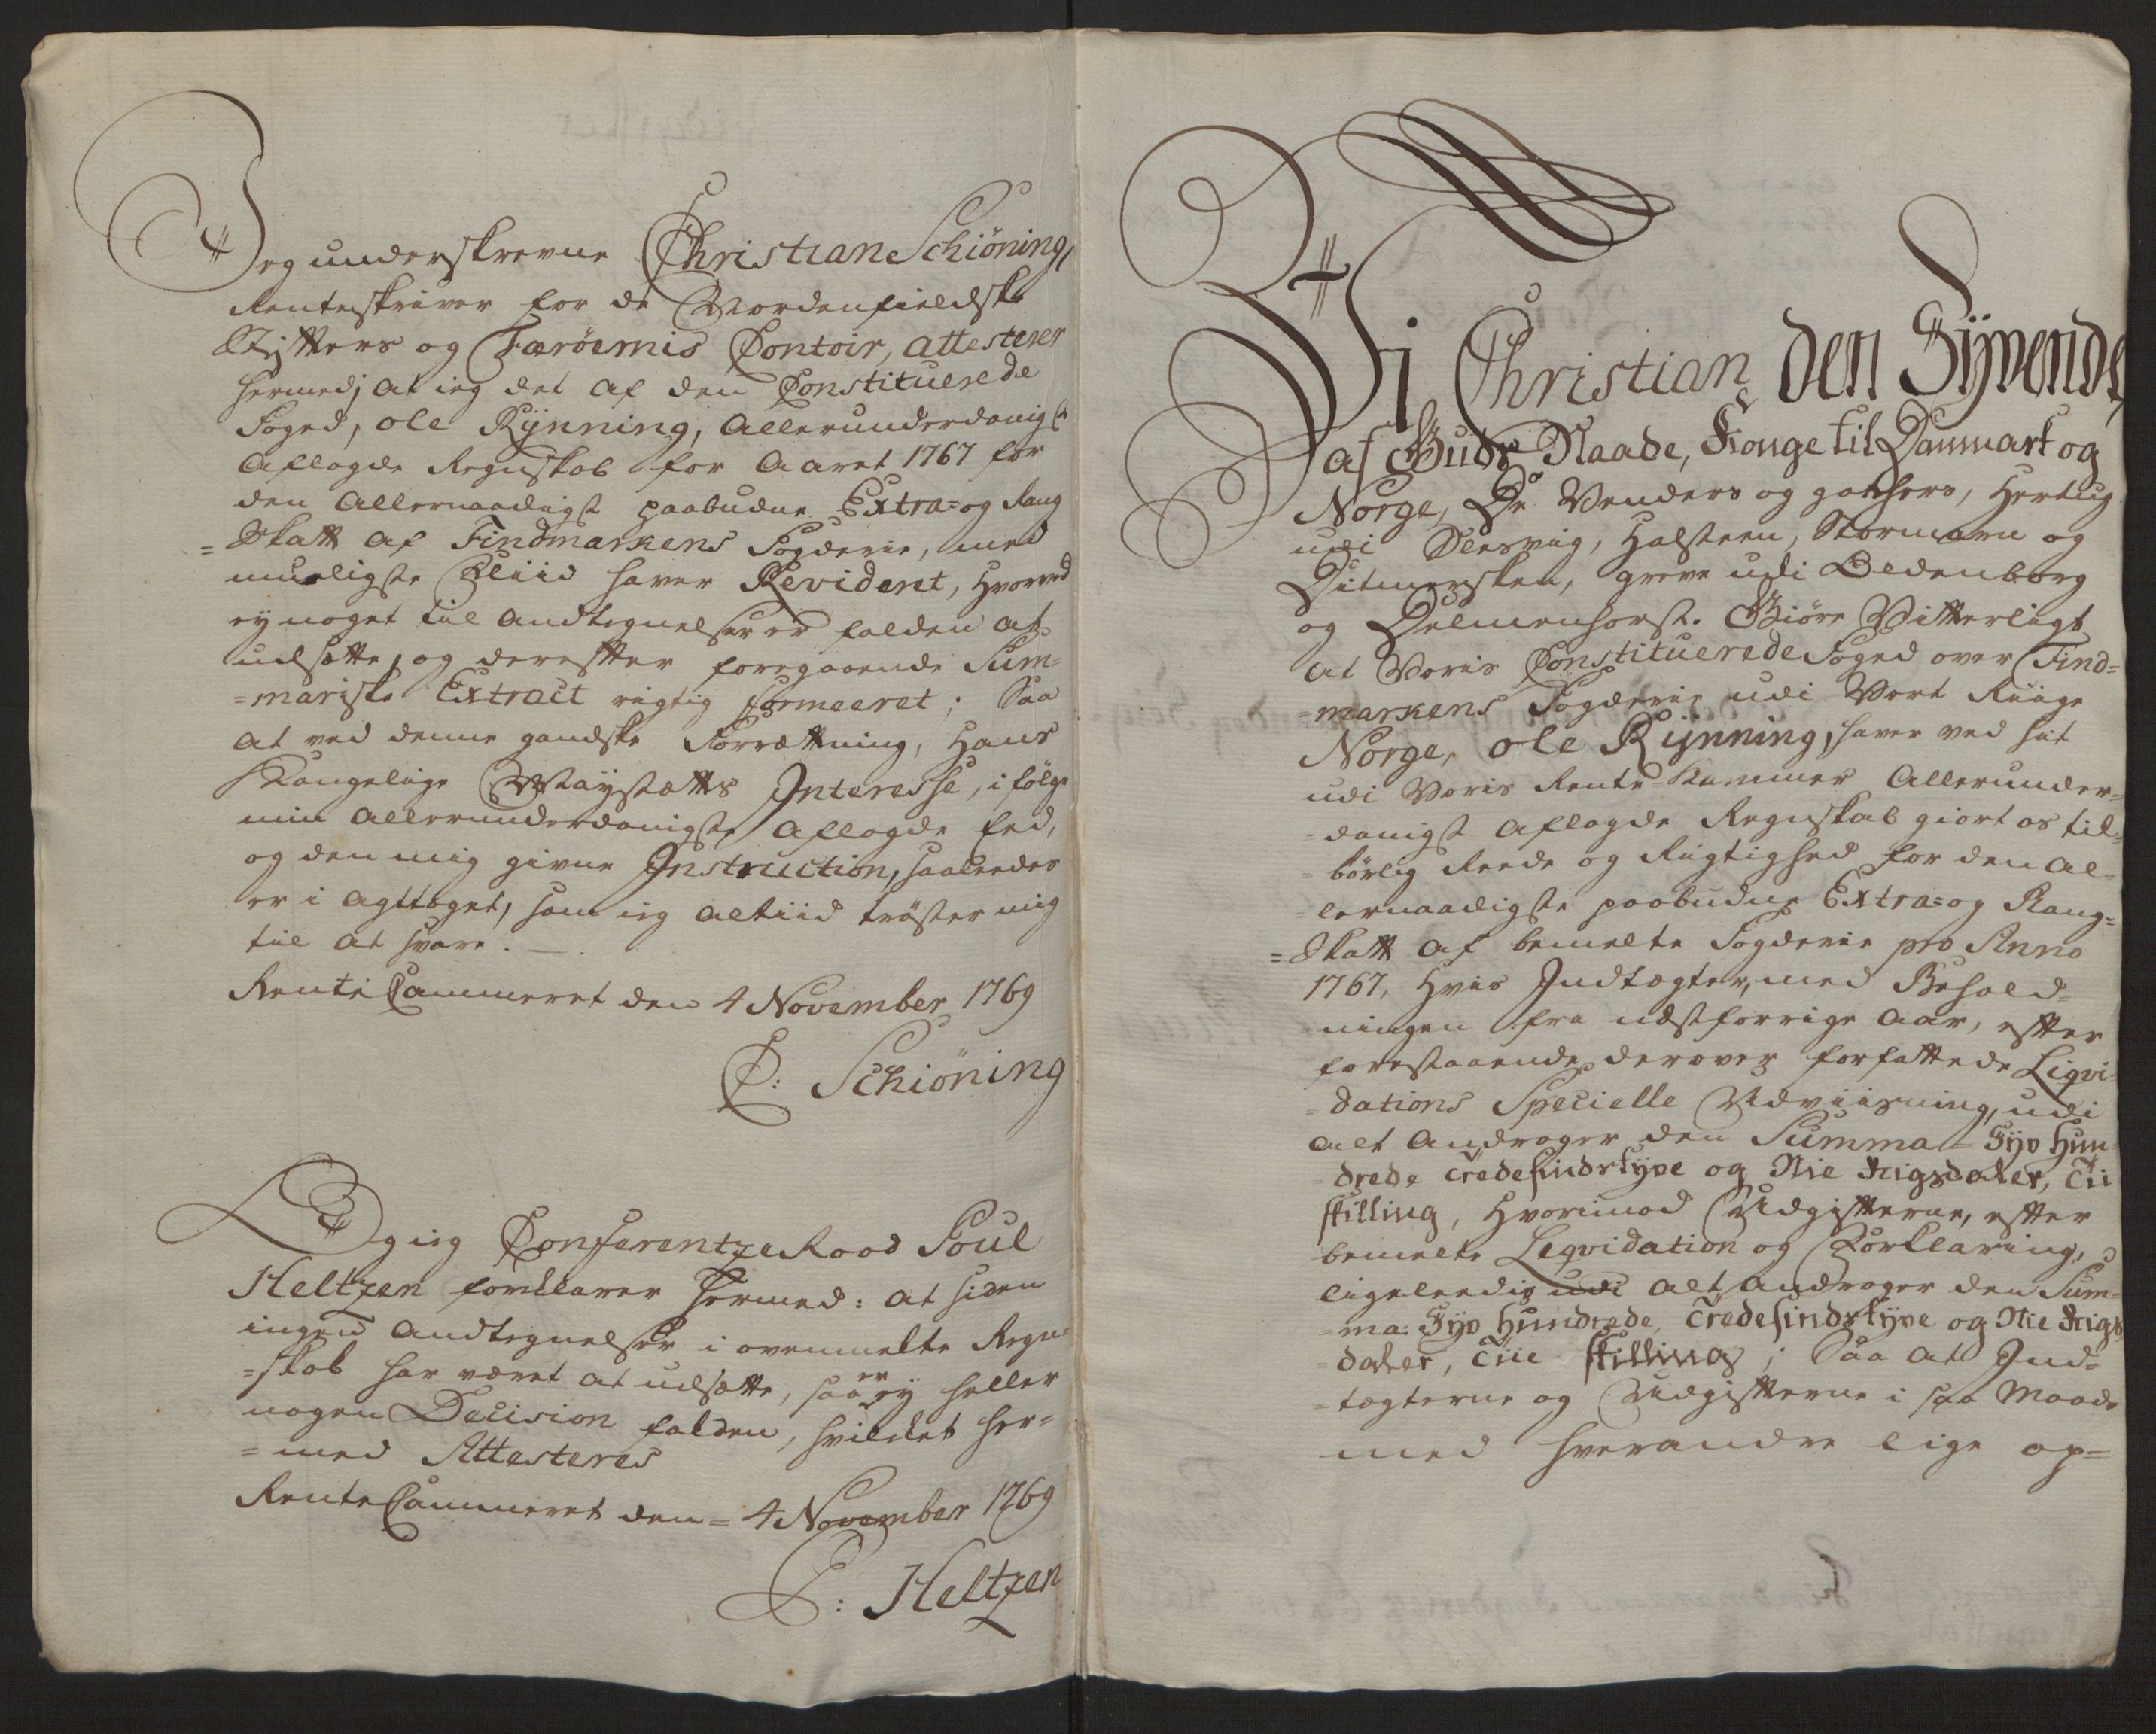 Jeg underskrevne Christian Schiöning,
Renteskriver for de Nordenfieldske
Stifters og Færöernis Contoir, attesterer
hermed; at ieg det af den Constituerede
Foged, Ole Rÿnning, Allerunderdanigst
Aflagde Regnskab for Aaret 1767 for
den Allernaadigst paabudne Extra= og Rang
=Skatt af Findmarkens Fogderie, med
mueligste Fliid haver Revideret, hvorved
ey noget til Andtegnelser er falden at
udsætte, og derefter foregaaende Sum=
=mariske Extract rigtig formeeret; Saa
at ved denne gandske Forrættning, Hans
Kongelige Mayestætts Interesse, i fölge
min Allerunderdanigste Aflagde Eed,
og den mig givne Instruction, saaleedes
er i agttaget, som ieg altiid tröster mig
til at svare. —
Rente Cammeret den 4 November 1769
C: Schiöning
Og ieg Conferentze Raad Poul
Heltzen forklarer hermed: at siden
ingen Andtegnelser i ovenmelte Regn=
=skab har været at udsætte, saa er ey heller
nogen Decision falden, hvilket her=
=med Attesteres
Rente Cammeret den = 4 November 1769
P: Heltzen
Vi Christian den Sÿvende,
af Guds Naade, Konge til Danmark og
Norge, De Venders og Gothers, Hertug
udi Slesvig, Holsteen, Stormarn og
Ditmersken, Greve udi Oldenborg
og Delmenhorst. Giöre Vitterligt
at Voris Constituerede Foged over Find=
=markens Fogderie udi Vort Riige
Norge, Ole Rÿnning, haver ved sit
udi Voris Rente-Kammer Allerunder=
=danigst Aflagde Regnskab giort os til=
=börlig Reede og Rigtighed for den Al=
=lernaadigste paabudne Extra= og Rang=
=Skatt af bemelte Fogderie pro Anno
1767, Hvis Indtægter, med Behold=
ningen fra næstforrige Aar, efter
forestaaende derover forfattede Liqvi=
=dations Specielle Udviisning, udi
alt Andrager den Summa - Syv Hun
drede Tredesindstÿve og Nie Rigsdaler, Tii
skilling, Hvorimod Udgifterne, efter
bemelte Leqvidation og Forklaring,
ligeleedis udi alt Andrager den Sum=
=ma: Syv Hundrede, Tredesindstÿve og Nie Rigs
daler, Tiie skilling; Saa at Ind=
=tægterne og Udgifterne i saa Maade
med hverandre lige op=